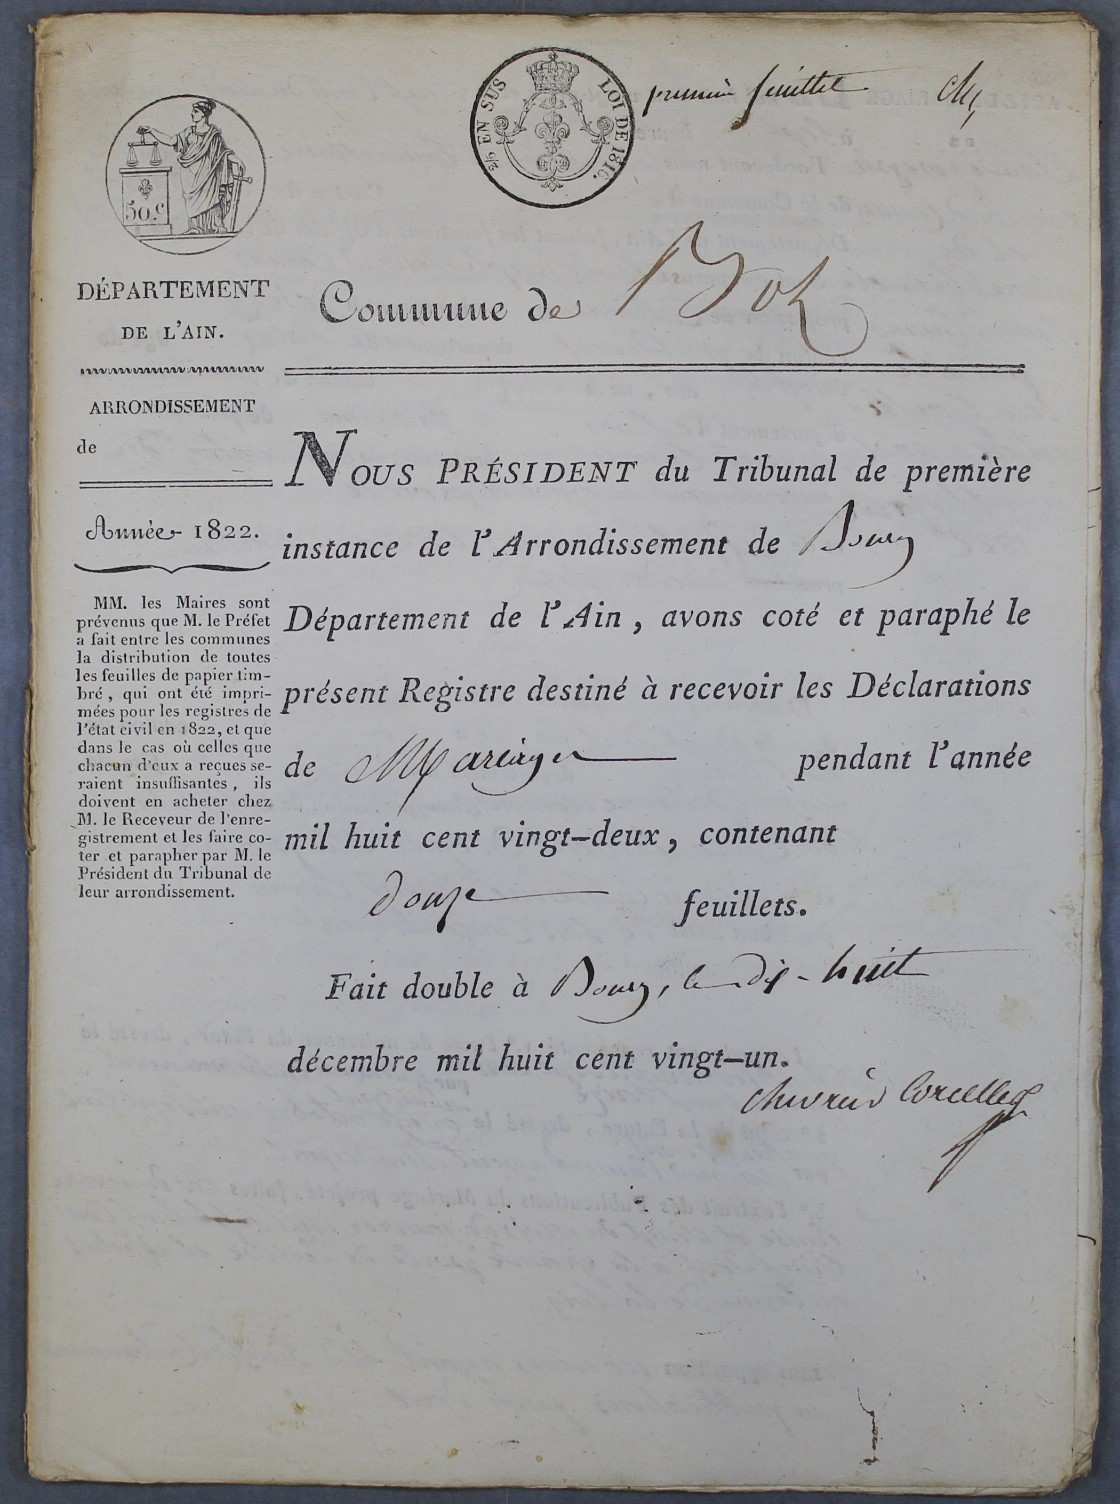 2/10 EN SUS LOI DE 1816.
premier feuillet
50 C
DÉPARTEMENT
DE L'AIN.
Commune de Boz
ARRONDISSEMENT
de
Année 1822.
MM. les Maires sont
prévenus que M. le Préfet
a fait entre les communes
la distribution de toutes
les feuilles de papier tim-
bré, qui ont été impri-
mées pour les registres de
l'état civil en 1822, et que
dans le cas où celles que
chacun d'eux a reçues se-
raient insuffisantes, ils
doivent en acheter chez
M. le Receveur de l'enre-
gistrement et les faire co-
ter et parapher par M. le
Président du Tribunal de
leur arrondissement.
NOUS PRÉSIDENT du Tribunal de première
instance de l'Arrondissement de Bourg
Département de l'Ain, avons coté et paraphé le
présent Registre destiné à recevoir les Déclarations
de Mariages pendant l'année
mil huit cent vingt-deux, contenant
douze feuillets.
Fait double à Bourg, le dix-huit
décembre mil huit cent vingt-un.
Chevrier Corcelles